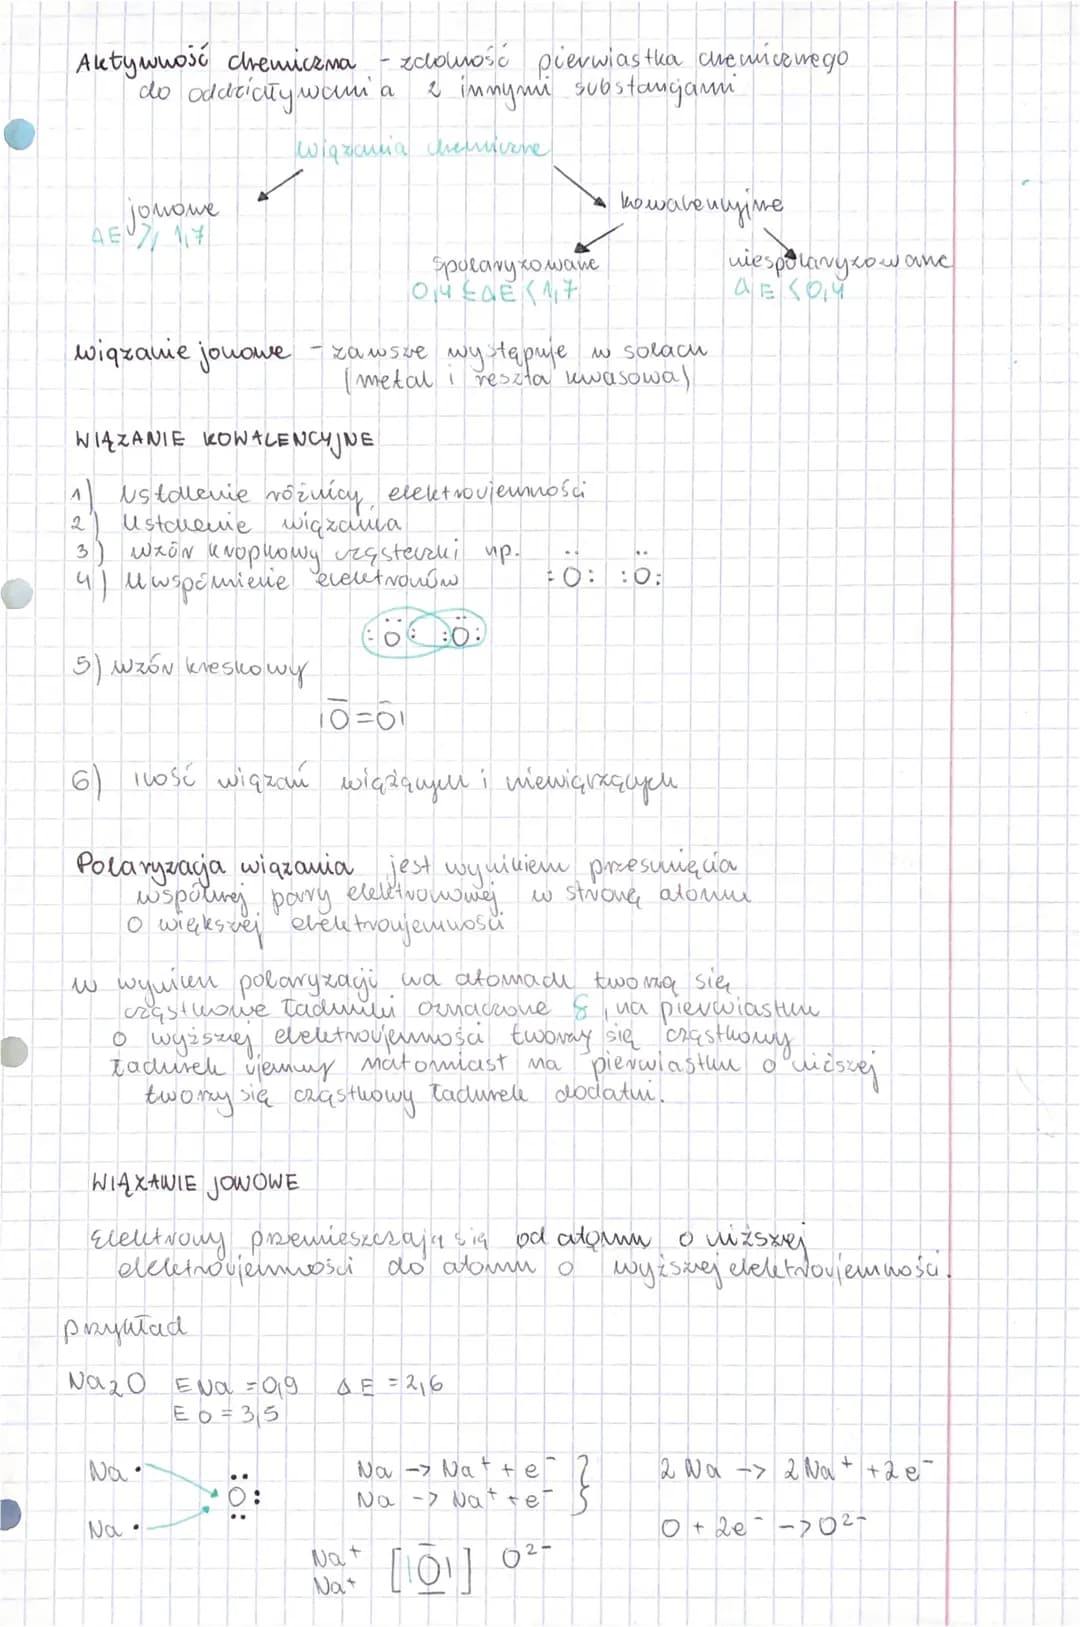 Aktywność chemiczna - zdolność pierwiastka chemicznego
do oddziaływania z innymi substancjami
wiązania chemiczne
jonowe
ΔE ⩾ 1,7
kowalencyjne
spolaryzowane
0,4 ≤ ΔE < 1,7
niespolaryzowane
ΔE < 0,4
wiązanie jonowe - zawsze występuje w solach
(metal i reszta kwasowa)
WIĄZANIE KOWALENCYJNE
1) Ustalenie różnicy elektroujemności
2) Ustalenie wiązania
3) wzór kropkowy cząsteczki np.
4) Uwspólnienie elektronów
:Ö: :Ö:
:Ö: :Ö:
5) wzór kreskowy
|O̅=O̅|
6) ilość wiązań wiążących i niewiążących
Polaryzacja wiązania jest wynikiem przesunięcia
wspólnej pary elektronowej w stronę atomu
o większej elektroujemności
w wyniku polaryzacji na atomach tworzą się
cząstkowe ładunki oznaczone δ, na pierwiastku
o wyższej elektroujemności tworzy się cząstkowy
ładunek ujemny natomiast na pierwiastku o niższej
tworzy się cząstkowy ładunek dodatni.
WIĄZANIE JONOWE
Elektrony przemieszczają się od atomu o niższej
elektroujemności do atomu o wyższej elektroujemności.
przykład
Na₂O ENa = 0,9 ΔE = 2,6
EO = 3,5
Na • Na -> Na⁺ + e⁻ } 2 Na -> 2 Na⁺ + 2e⁻
:Ö: Na -> Na⁺ + e⁻
Na • O + 2e⁻ -> O²⁻
Na⁺ [|O̅|] O²⁻
Na⁺